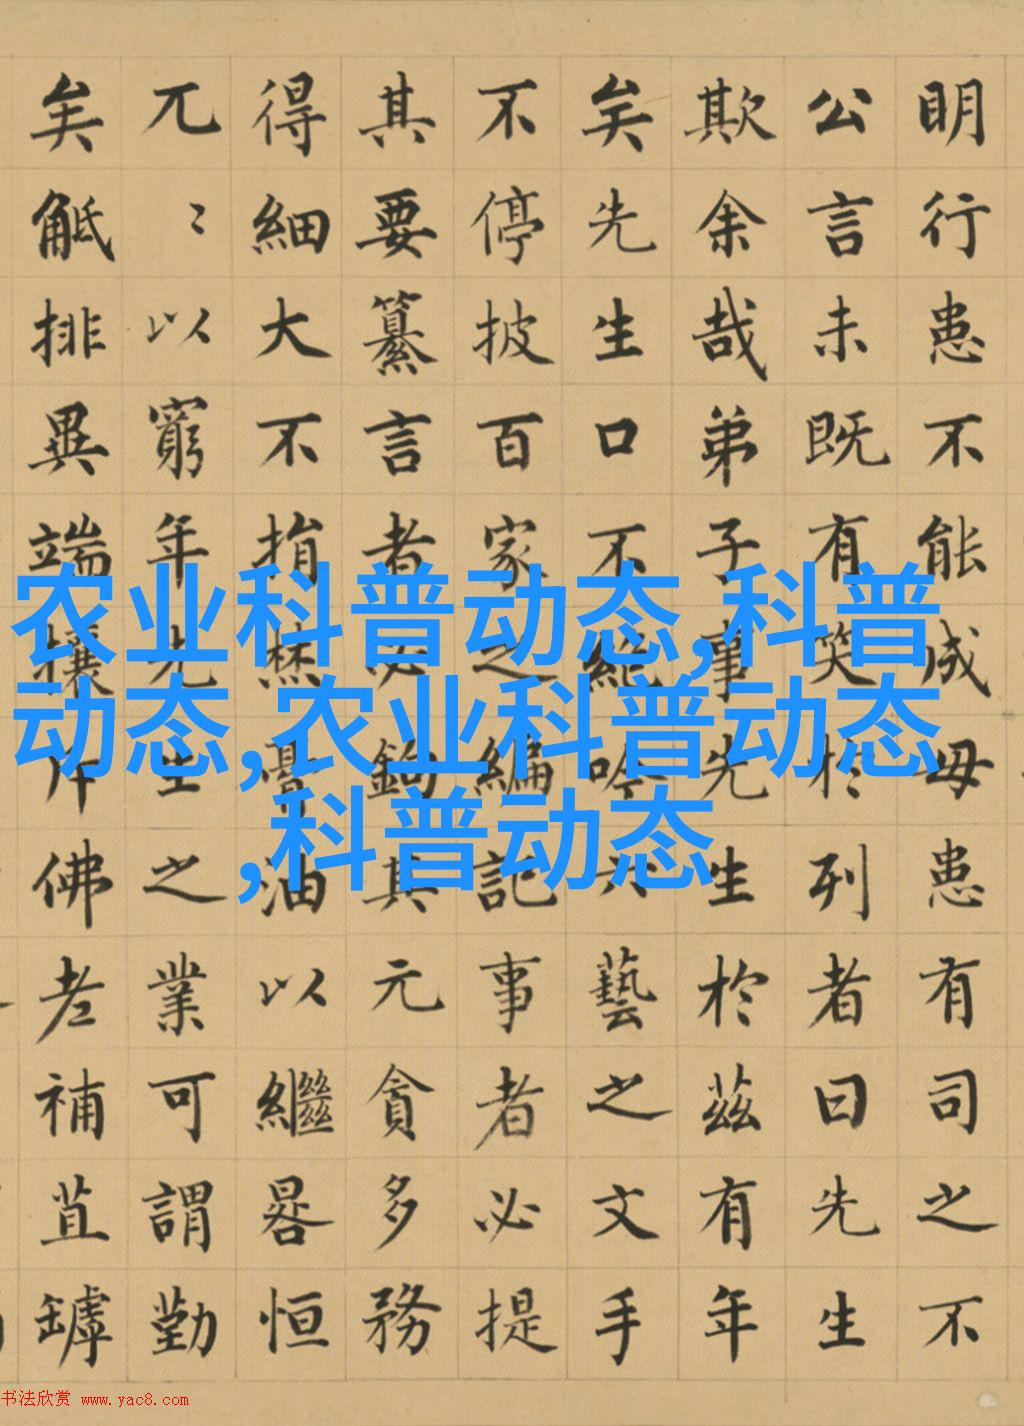 明行患不能成毋患有司之不
公言未既有笑於列者曰先生
欺余哉弟子事先生於茲有年
矣先生口不絕吟六藝之文手
不停披百家之編記事者必提
其要纂言者必鉤其元貪多務
得細大不捐焚膏油以繼晷恒
兀〻以窮年先生之業可謂勤
矣觝排異端攘斥佛老補苴罅
农业科普动态,科普
动态,农业科普动态
,科普动态
书法欣赏 www.yac8.com